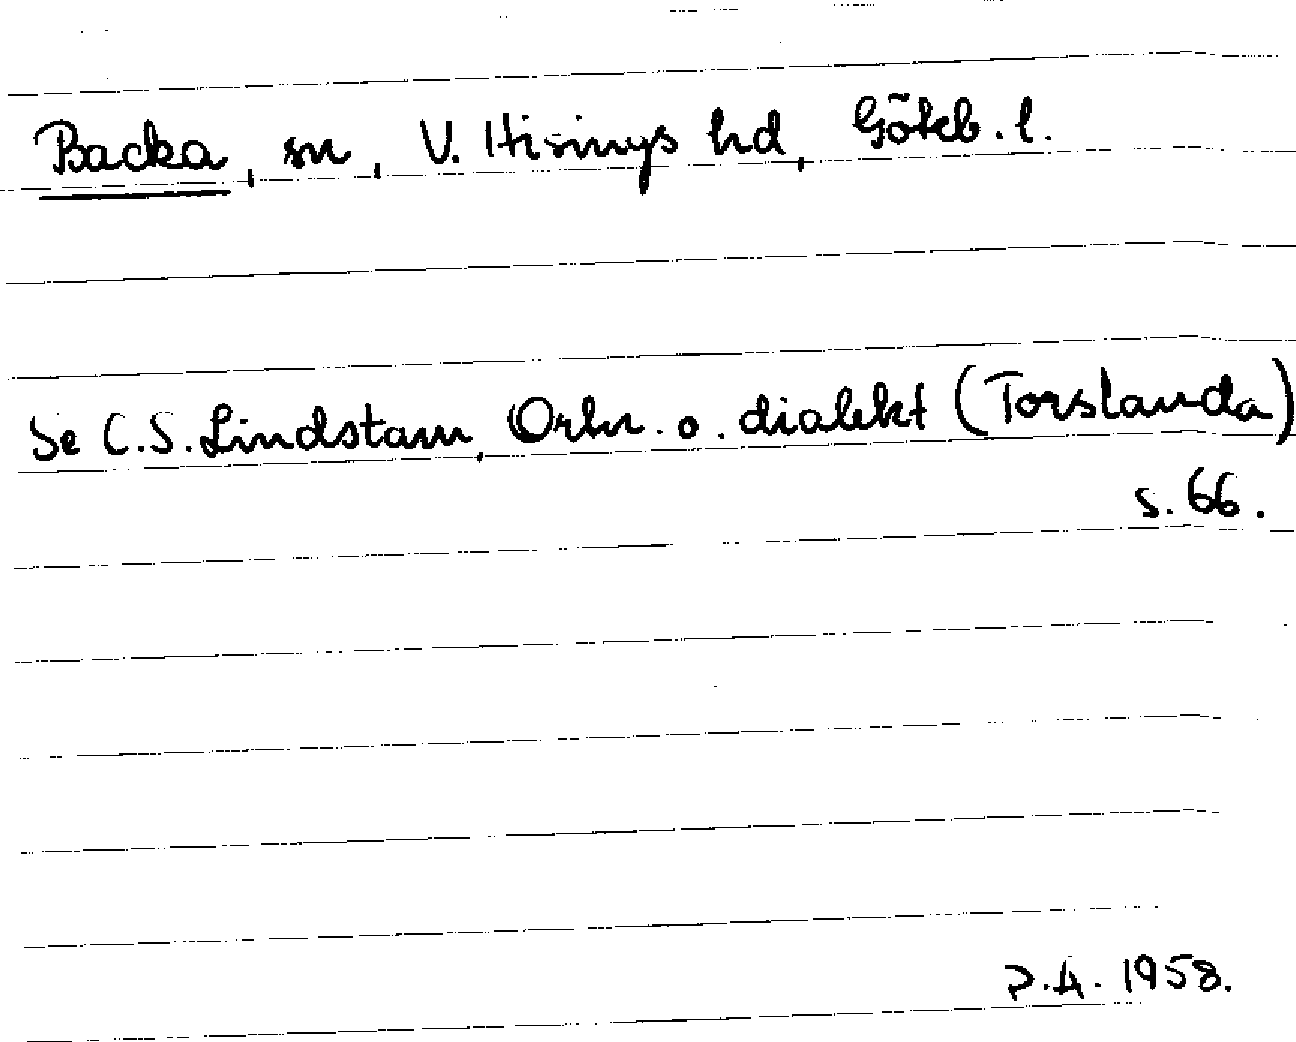 Backa, sn, V. Hisings hd, Göteb. l.
Se C.S. Lindstam, Ortn. o. dialekt (Torslanda)
s. 66.
P.A. 1958.